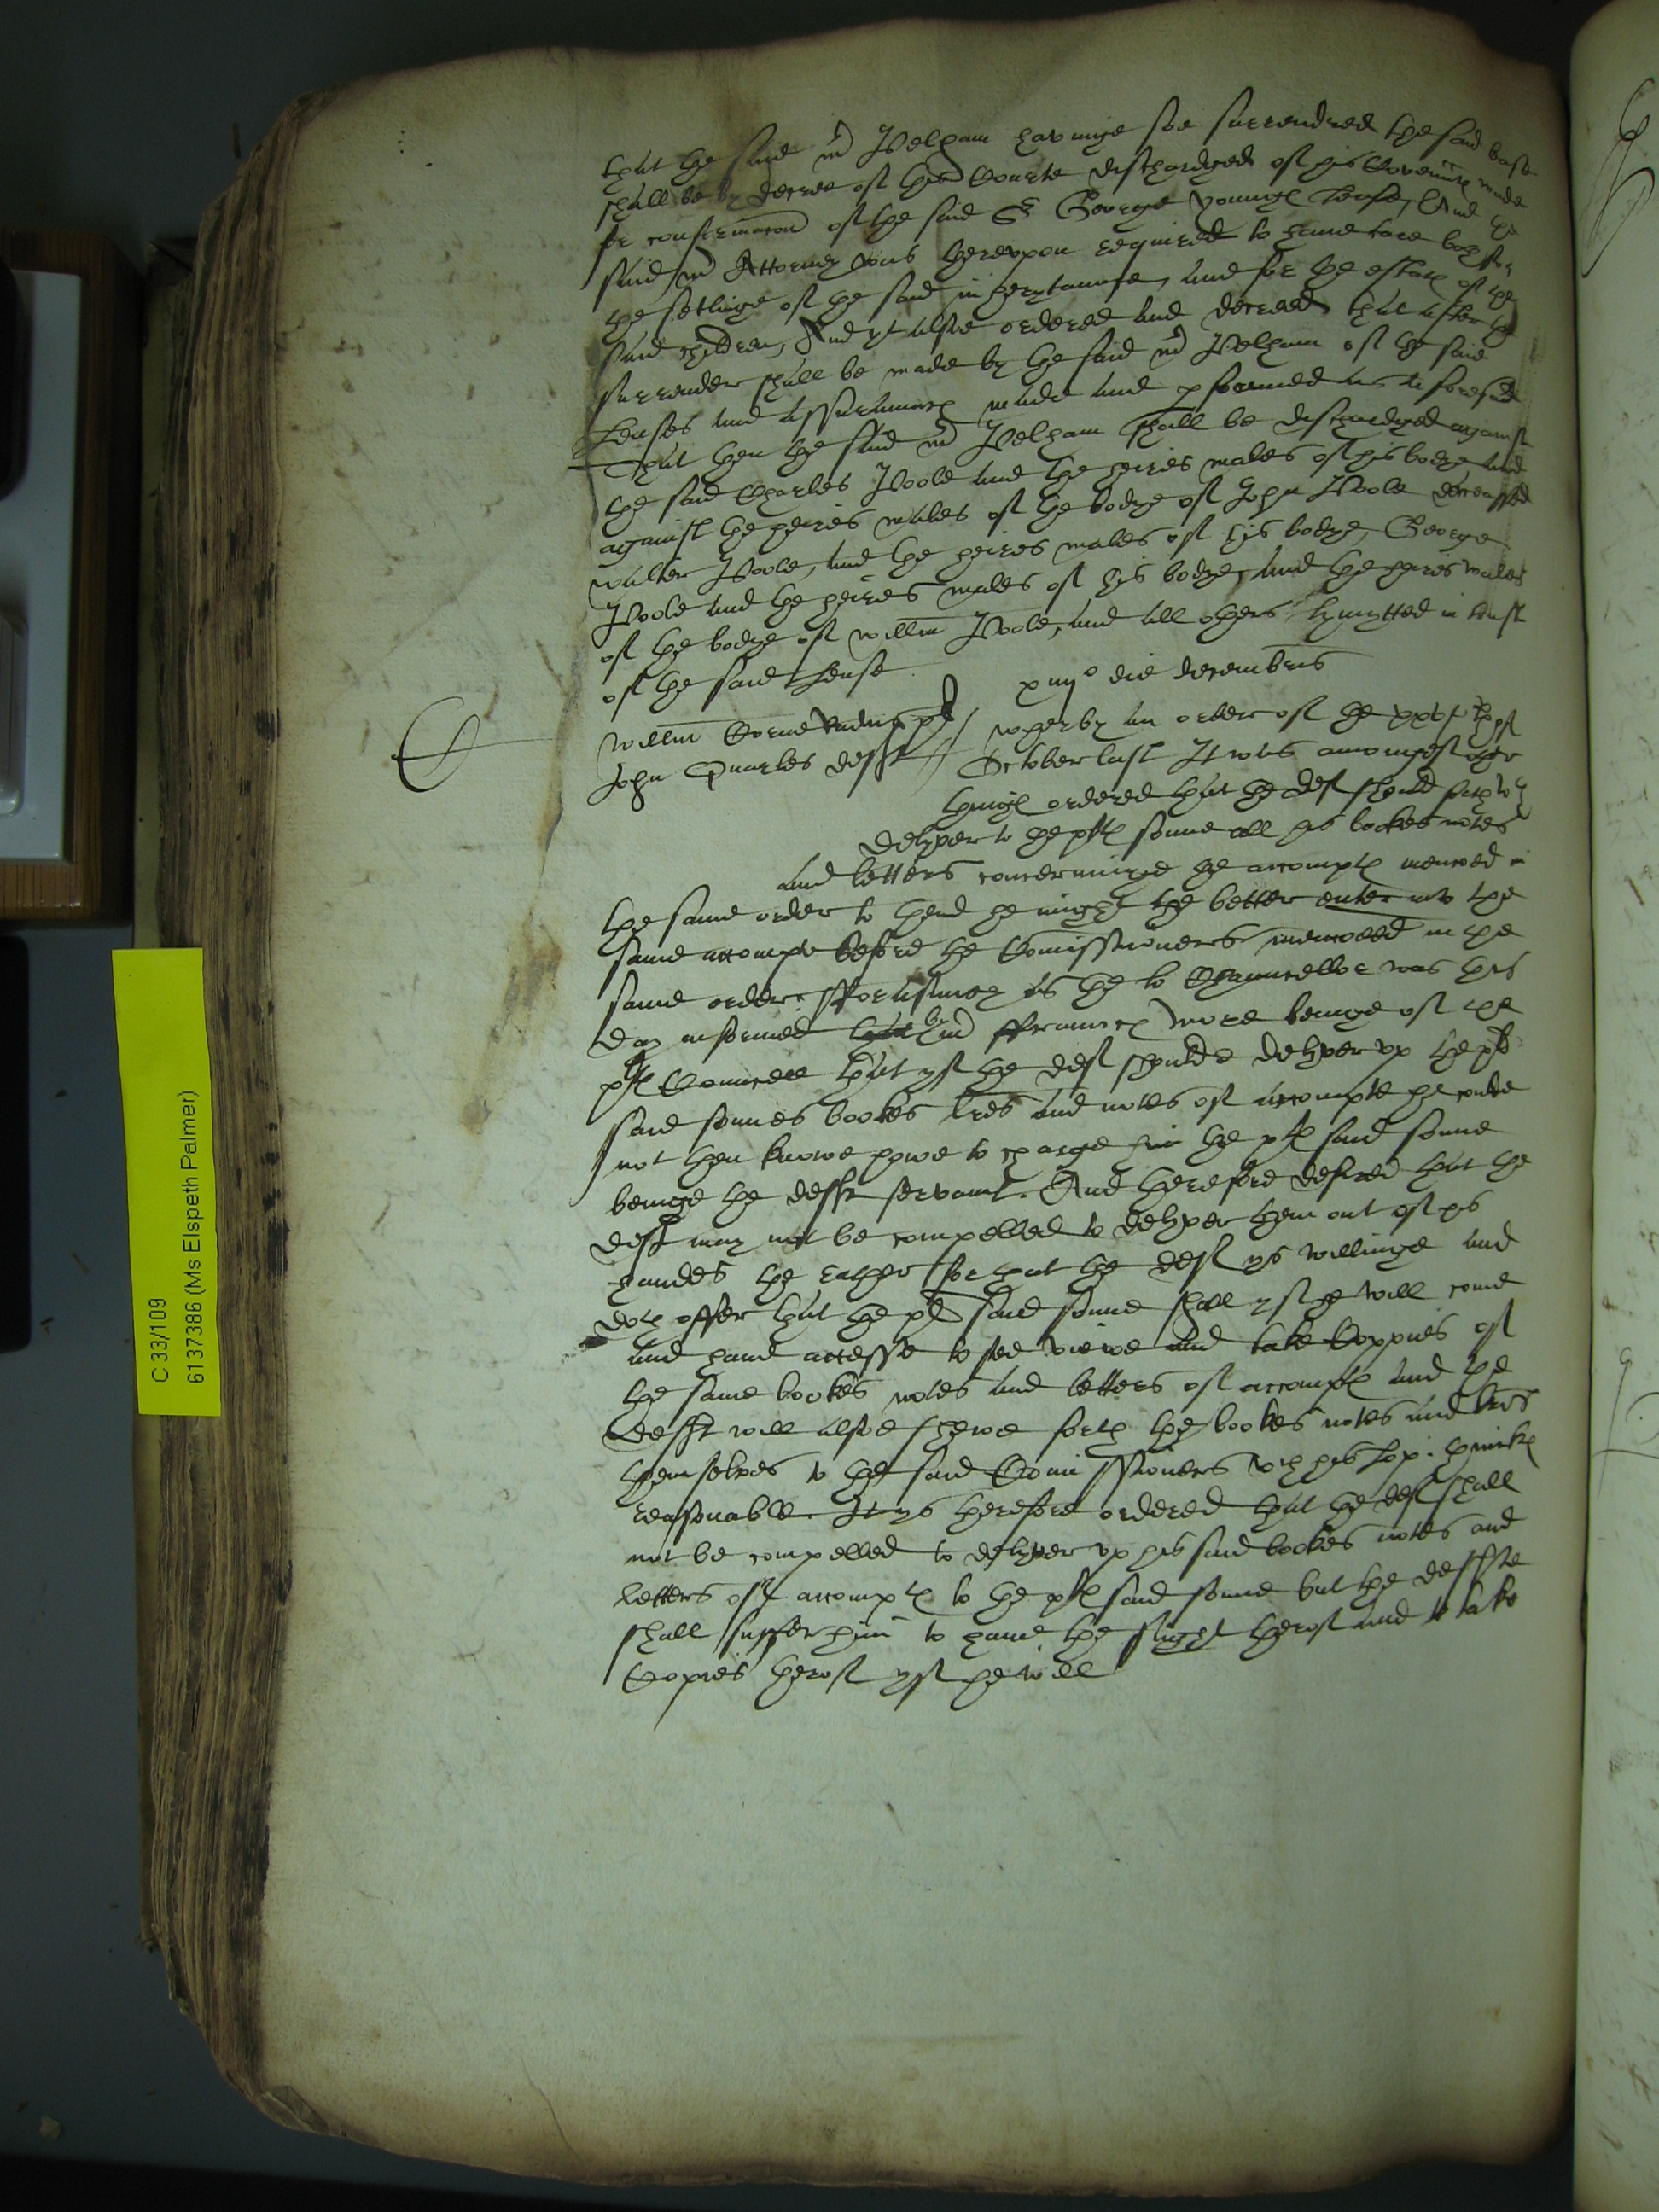 that the said mr Pelham havinge soe surrendred the said lease
shall be by decree of this Courte dischardged of his Covenntes made
for confirmacon of the said Sr George Younges lease, And the
said mr Attorney was therevpon required to have care both for
the setlinge of the said inherytaunce, and for the estate of the
said children, And yt alsoe ordered and decreed that after the
surrender shall be made by the said mr Pelham of the said
leases and assuraunces made and pformed as aforesaid
That then the said mr Pelham shall be dischardged against
the said Charles Poole and the heires males of his bodye and
against the heires males of the bodye of John Poole deceassed
walter Poole, and the heires males of his bodye, George
Poole and the heires males of his bodye, and the heires males
of the bodye of willm Poole, and all others lymytted in trust
of the said lease
xiiijo die decembris
willm plt
John Quarles defft
wherby an order of the xxvjth of
October last It was amongest other
thinges ordered that the deft should forthwth
delyver to the pltes sonne all his bookes notes
and letters concerninge the accomptes mencoed in
the same order to thend he might the better enter into the
same accompte before the Comissioners mencoed in the
same order. fforasmuch as the lo Chauncellor was this
day informed that by mr ffrauncis Moore beinge of the
pltes Councell that yf the deft should delyver vp the plts
said sonnes bookes lres and notes of accompte he coulde
not then knowe howe to charge him the pltes said sonne
beinge the deffts servaunt. And therefore desired that the
deft may not be compelled to delyver them out of his
handes the rather for that the deft ys willinge and
doth offer that the plts said sonne shall yf he will come
and haue accesse to see viewe and take Coppies of
the same bookes notes and letters of accomptes and the
defft will alsoe shewe forth the bookes notes and lres
themselves to the said Comissioners wch his Lop. thinkes
reasonable. It ys therefore ordered that the deft shall
not be compelled to delyver vp his said bookes notes and
letters of accomptes to the pltes said sonne but the deffte
shall suffer him to haue the sight therof and to take
Copies therof yf he will
C 33/109
6137386 (Ms Elspeth Palmer)